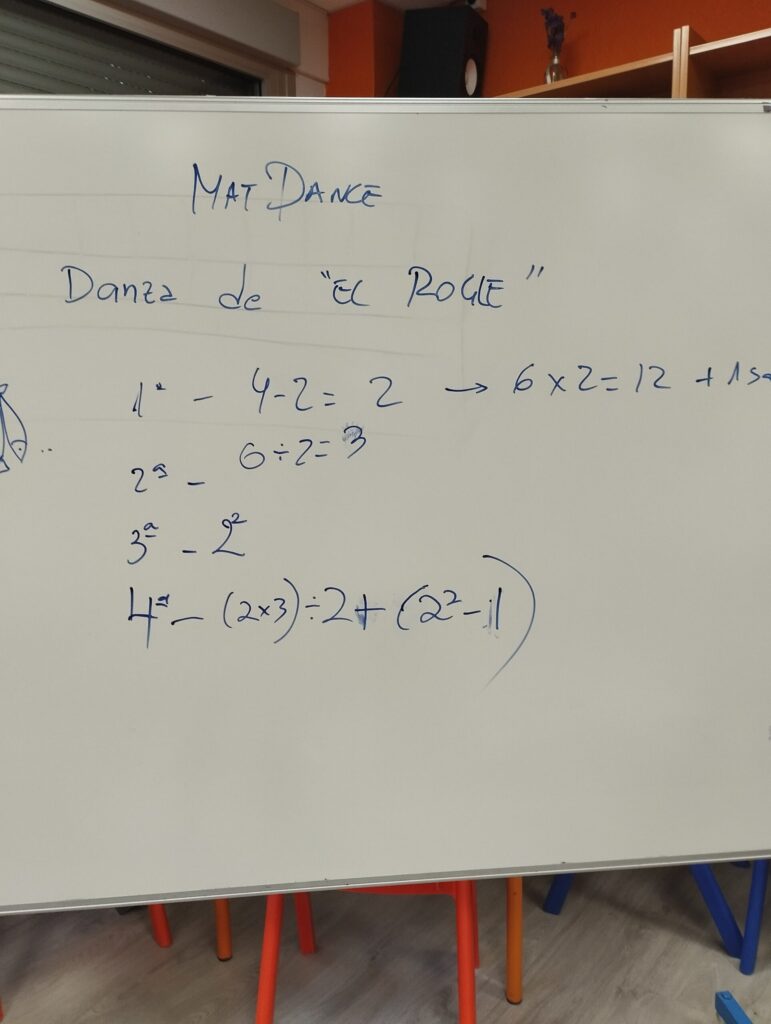 MAT DANCE
Danza de "EL ROGLE"
1ª - 4-2= 2 → 6×2=12 + 1
2ª - 6÷2=3
3ª - 2²
4ª - (2×3)÷2+(2²-1)